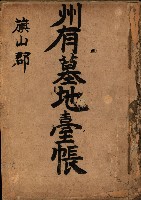 州有墓地臺帳
旗山郡